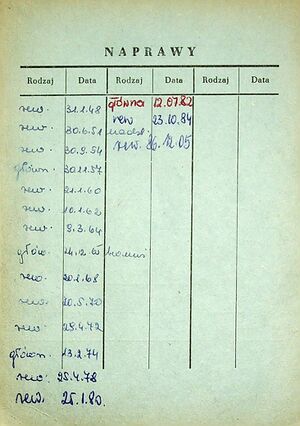 NAPRAWY
Rodzaj Data Rodzaj Data Rodzaj Data
rew. 31.1.48 główna 12.07.82
rew. 30.6.51 rew 23.10.84
rew. 30.9.54 nadzw. rew. 06.12.05
główn. 30.11.57
rew. 21.1.60
rew. 10.1.62
rew. 9.3.64
głów. 14.12.65
rew. 20.1.68
rew. 20.5.70
rew. 29.4.72
główn. 13.2.74
rew. 25.4.78
rew. 25.1.80.